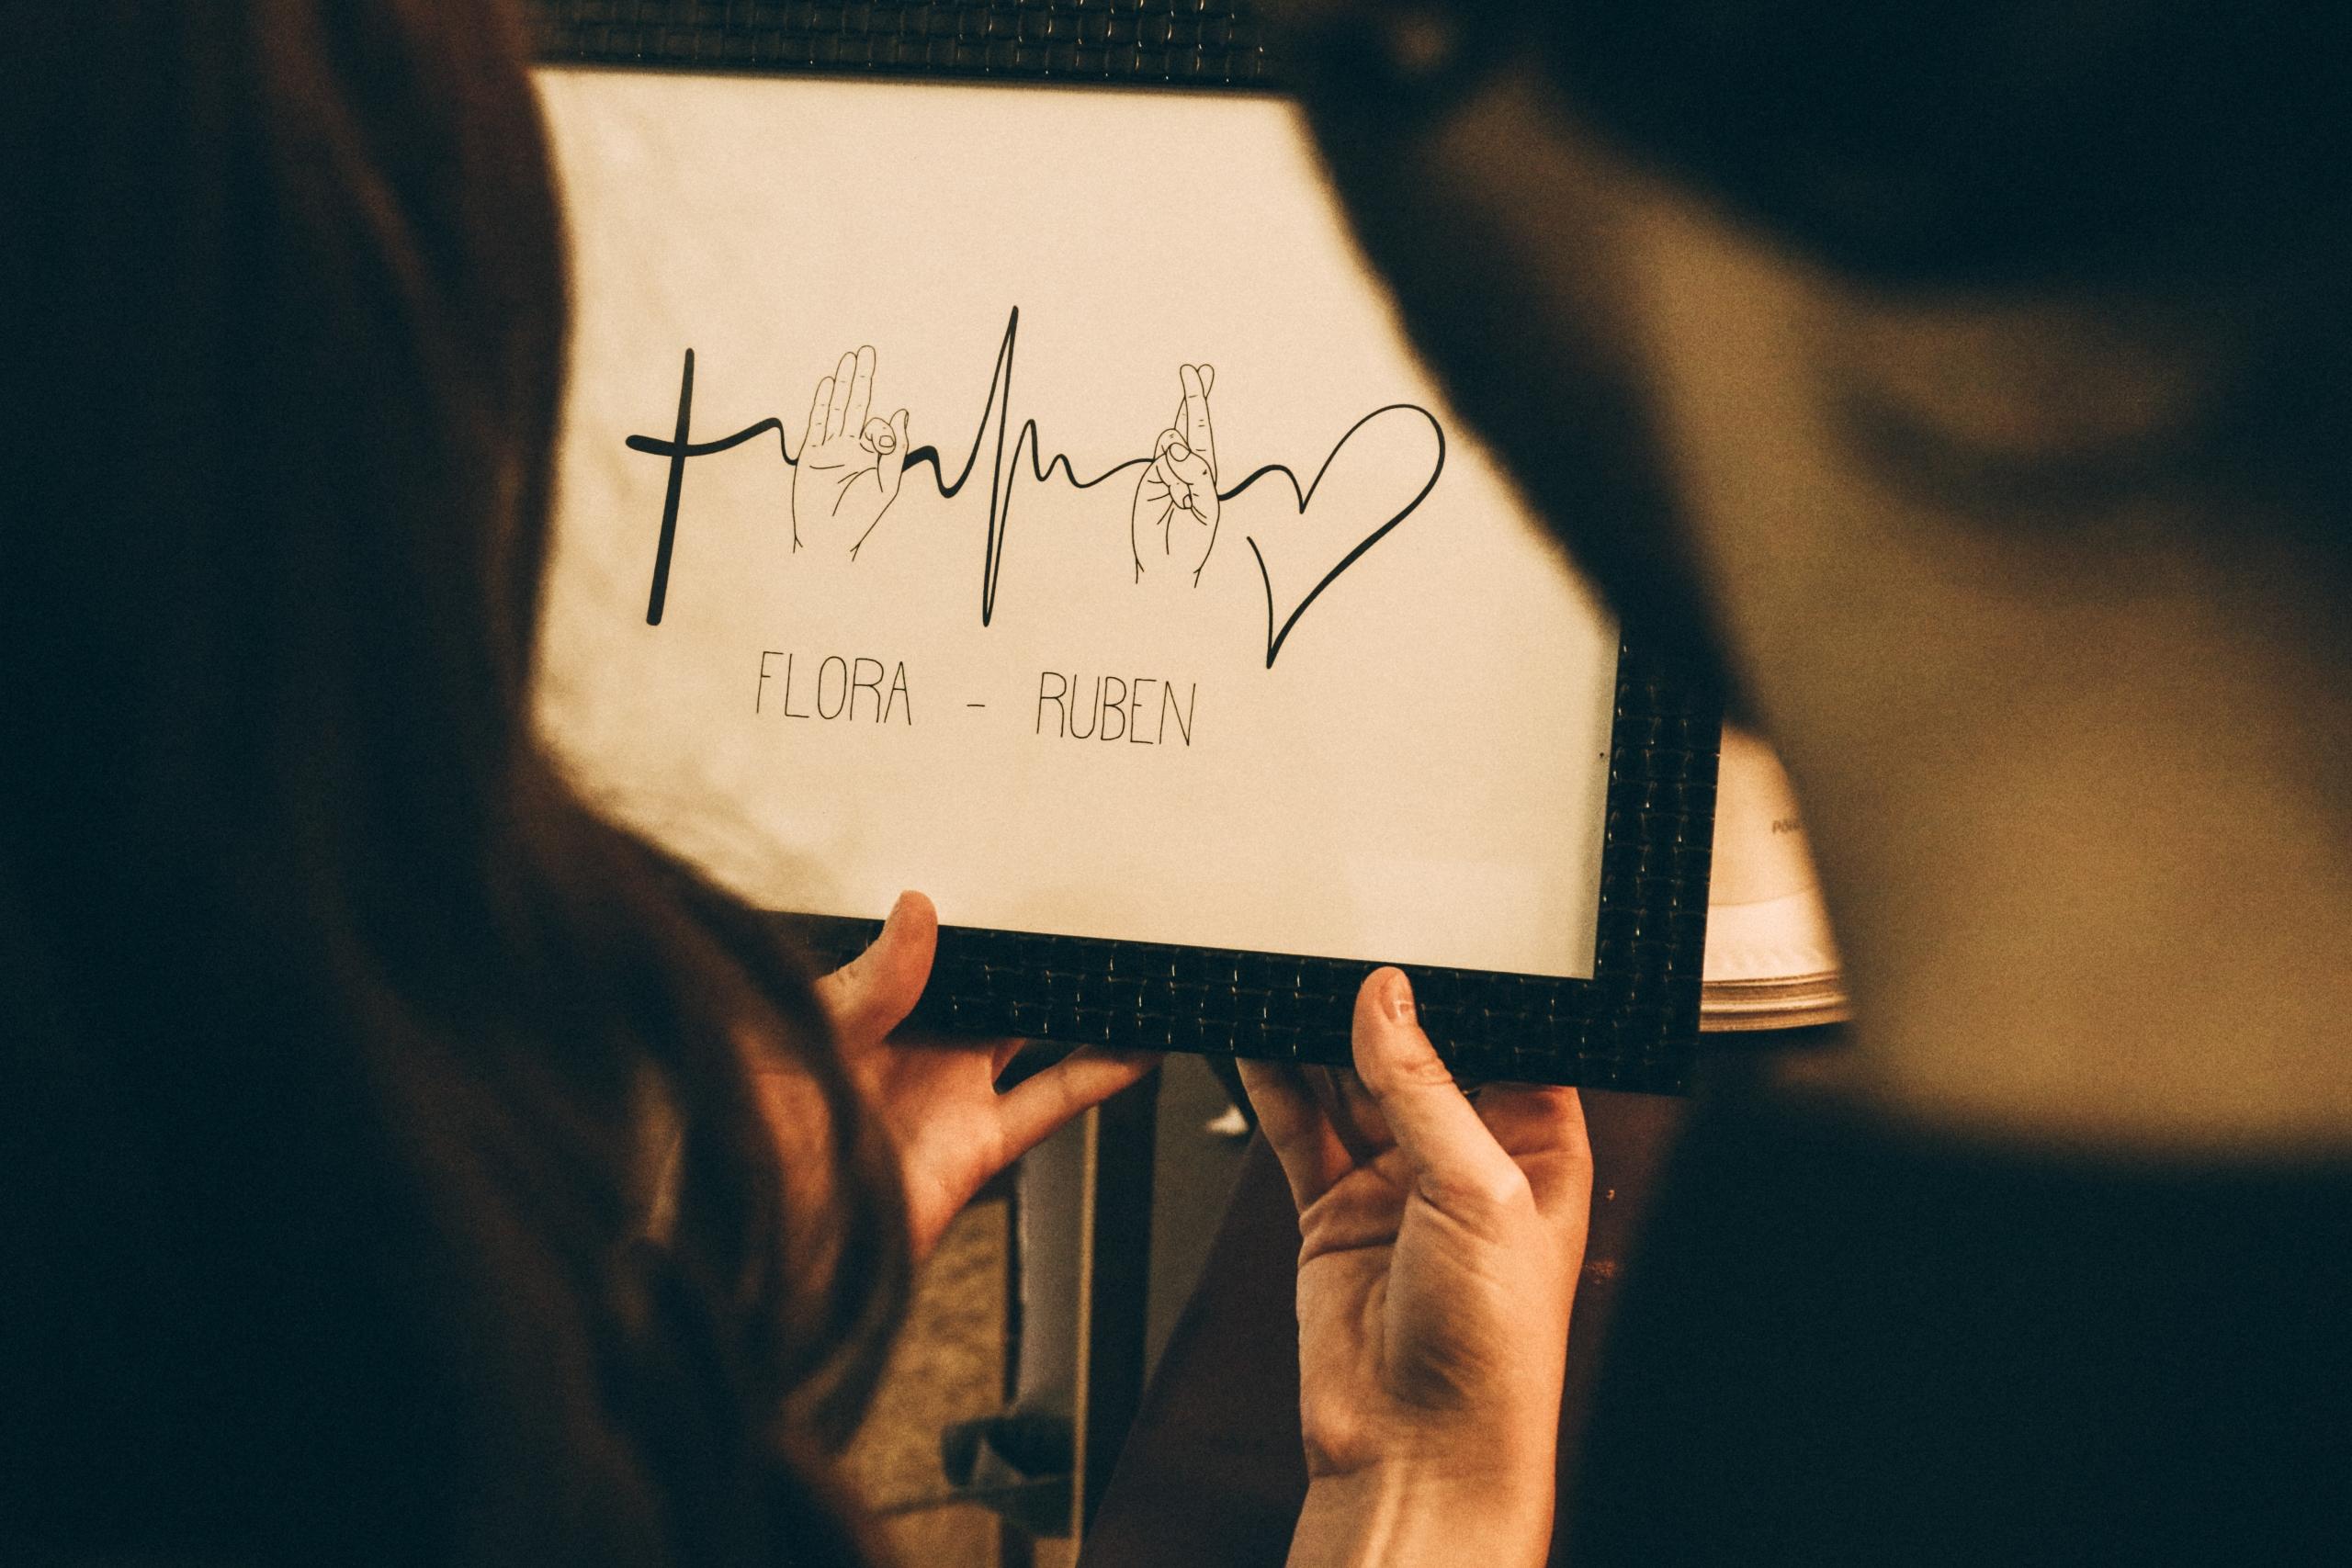 FLORA - RUBEN